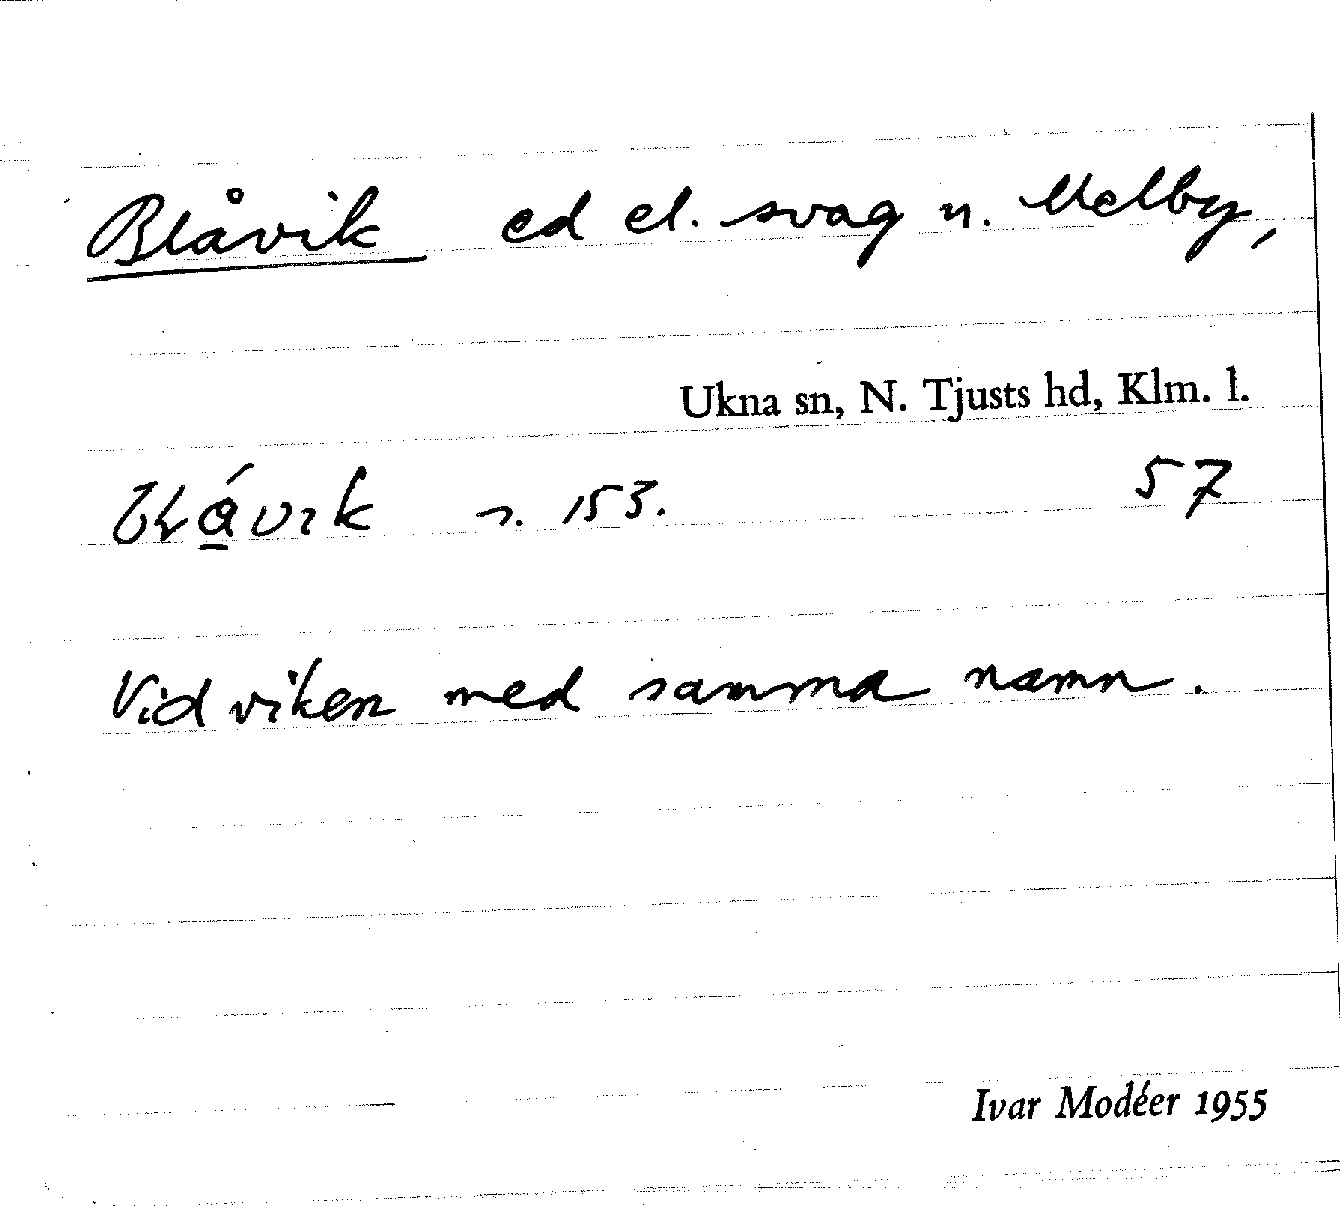 Blåvik ed el. svag n. Melby,
Ukna sn, N. Tjusts hd, Klm. l.
s. 153. 57
Vid viken med samma namn.
Ivar Modéer 1955